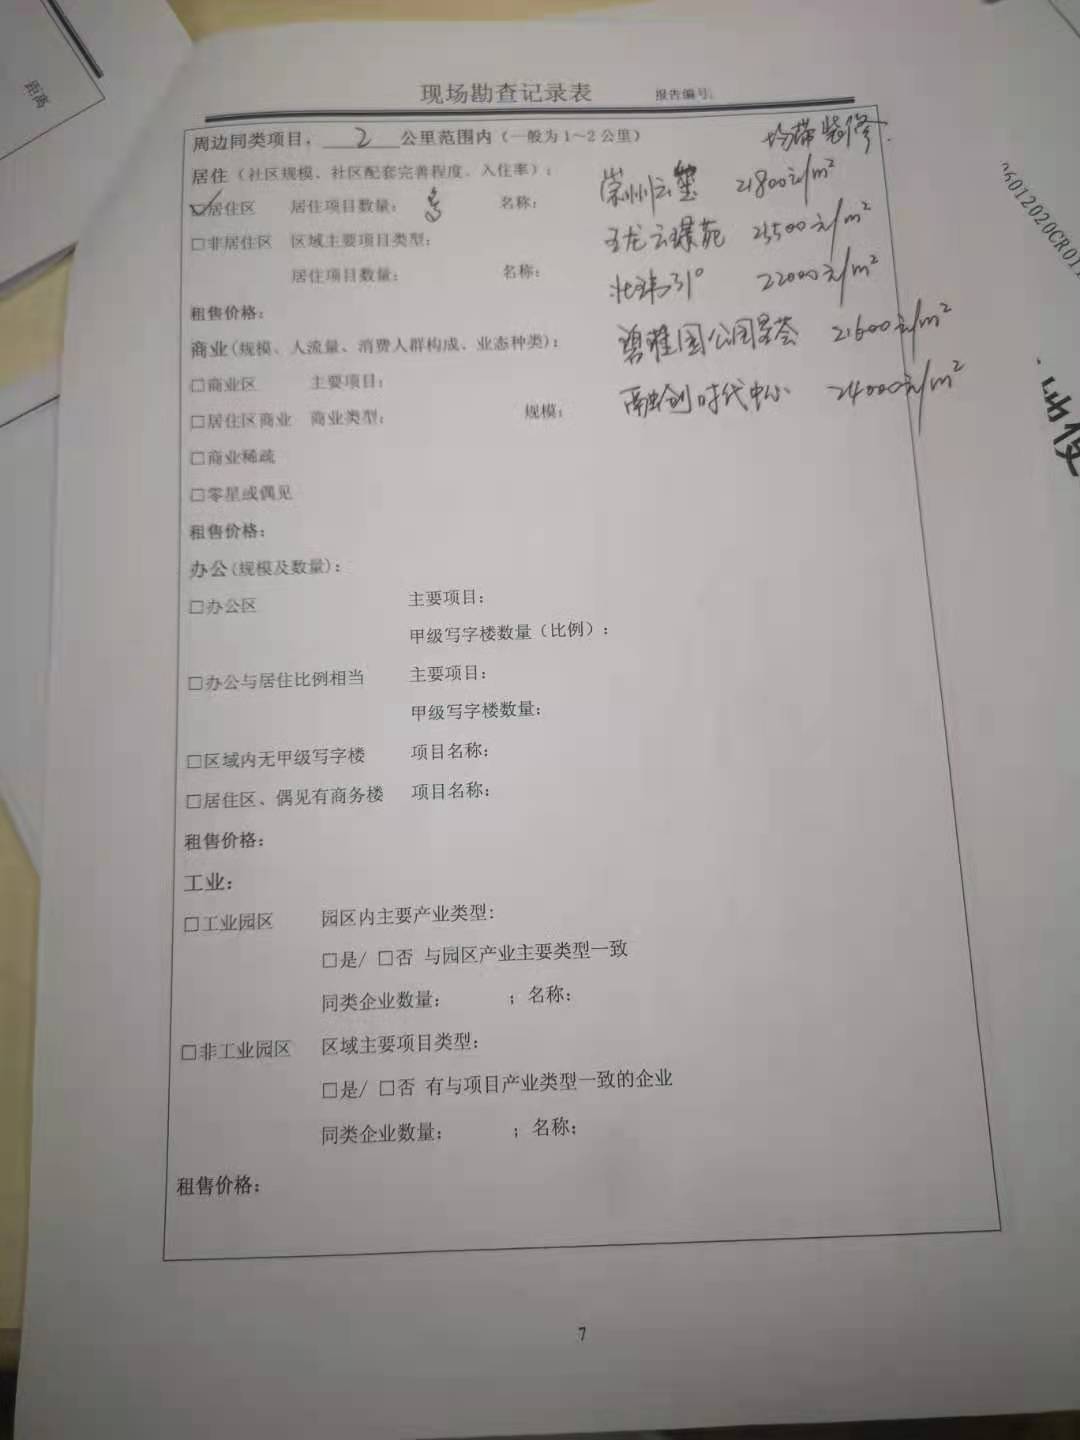 距离
现场勘查记录表 报告编号:
周边同类项目，2公里范围内（一般为1~2公里） 均带装修.
居住（社区规模、社区配套完善程度、入住率）:
☑居住区 居住项目数量: 名称: 崇州云玺 21800元/m²
□非居住区 区域主要项目类型: 云璟苑 23500元/m²
居住项目数量: 名称: 北纬31° 22000元/m²
租售价格:
商业(规模、人流量、消费人群构成、业态种类): 公园星荟 21600元/m²
□商业区 主要项目:
□居住区商业 商业类型: 规模: 融创时代中心 24000元/m²
□商业稀疏
□零星或偶见
租售价格:
办公(规模及数量):
□办公区 主要项目:
甲级写字楼数量（比例）:
□办公与居住比例相当 主要项目:
甲级写字楼数量:
□区域内无甲级写字楼 项目名称:
□居住区、偶见有商务楼 项目名称:
租售价格:
工业:
□工业园区 园区内主要产业类型:
□是/ □否 与园区产业主要类型一致
同类企业数量: ；名称:
□非工业园区 区域主要项目类型:
□是/ □否 有与项目产业类型一致的企业
同类企业数量: ；名称:
租售价格:
7